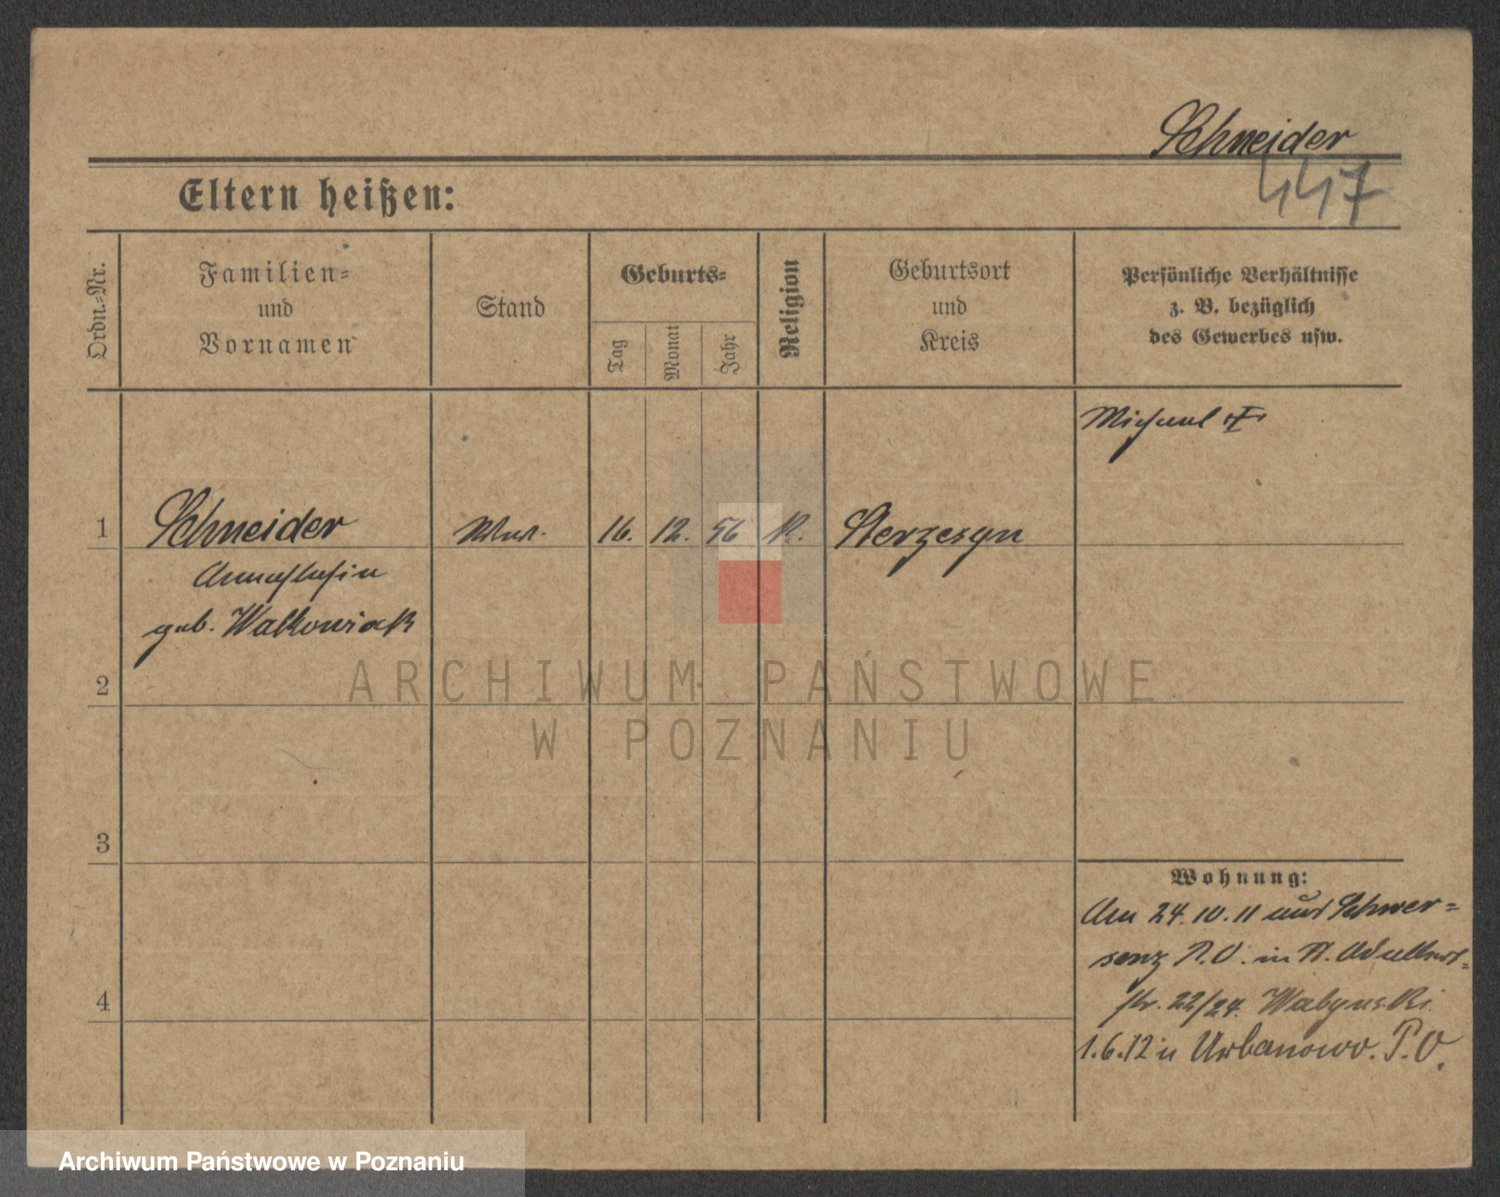 Schneider
447
Eltern heißen:
Ordn.-Nr.
Familien-
und
Vornamen
Stand
Geburts-
Tag
Monat
Jahr
Religion
Geburtsort
und
Kreis
Persönliche Verhältnisse
z. B. bezüglich
des Gewerbes usw.
Michael
1
Schneider
Wwe.
16. 12. 56
K.
Sterzesyn
geb. Walkowiak
2
3
4
Wohnung:
Am 24.10.11 aus Schwer=
senz P.O. in St. Adalbert=
str. 22/24.
1.6.12 n Urbanowo. P.O.
ARCHIWUM PAŃSTWOWE
W POZNANIU
Archiwum Państwowe w Poznaniu